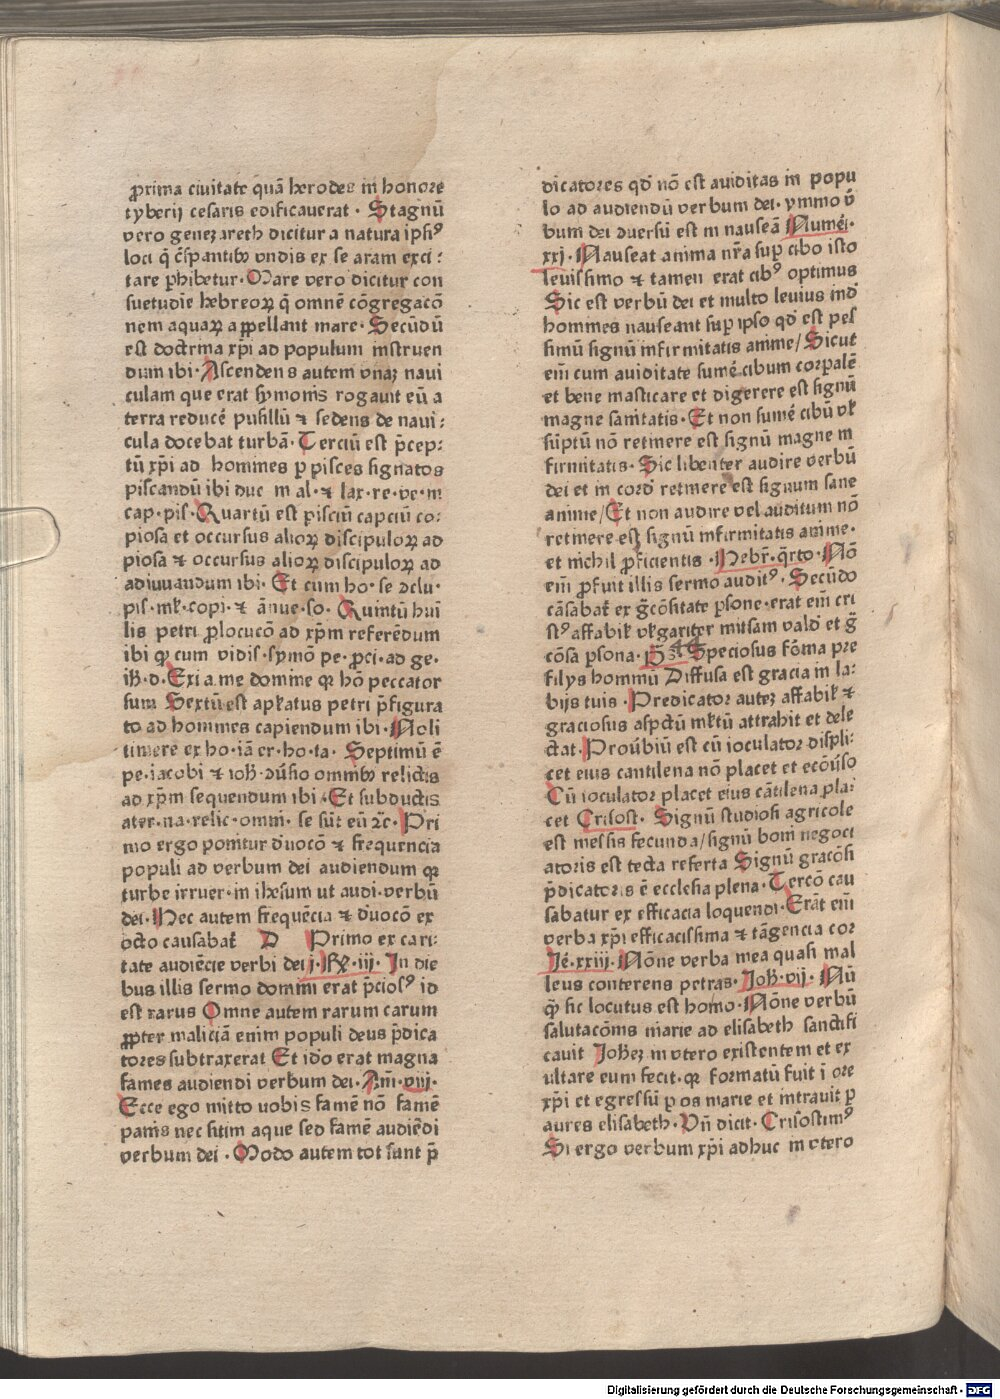 ꝓxima ciuitate quā herodes in honore
tyberij cesaris edificauerat · Stagnū
vero geneʒareth dicitur a natura ipsiꝰ
loci q̄ c̄spantibꝫ vndis ex se aram exci :
tare ꝑhibetur · Mare vero dicitur con
suetudīe hebreoꝝ q̄ omnē cōgregacō
nem aquaꝝ appellant mare · Secūdū
est doctrina xp̄i ad populum instruen
dum ibi · Ascendens autem vnaʒ naui
culam que erat symonis rogauit eū a
terra reducē pusillū ⁊ sedens de naui :
cula docebat turbā · Terciū est p̄cep :
tū xp̄i ad homines ꝑ pisces signatos
piscandū ibi duc in al · ⁊ lax · re · ve · in
cap · pis · Quartū est pisciū capciū co :
piosa et occursus alioꝝ discipuloꝝ ad
piosa ⁊ occursus alioꝝ discipuloꝝ ad
adiuuandum ibi · Et cum ho · se ↄclu ·
pis · ml̄t · copi · ⁊ ānue · so · Quintū hui
lis petri ꝓlocucō ad xp̄m referēdum
ibi ꝙ cum vidis · symō pe · ꝓci · ad ge ·
ih̄ · d · Exi a me domine qꝛ hō peccator
sum Sextū est apl̄atus petri p̄figura
to ad homines capiendum ibi · Noli
timere ex ho · iā er · ho · ca · Septimū ē
pe · iacobi ⁊ ioh̄ · ↄūsio omnibꝫ relictis
ad xp̄m sequendum ibi · Et subductis
ater · na · relic · omni · se sūt eū ⁊c · Pri
mo ergo ponitur d̄uocō ⁊ frequencia
populi ad verbum dei audiendum qꝛ
turbe irruer · in ihesum ut audi · verbū
dei · Hec autem frequēcia ⁊ d̄uocō ex
octo causabat̄ D Primo ex cari :
tate audiēcie verbi dei j · Rꝝ · iij · In die
bus illis sermo domini erat p̄ciosꝰ id
est rarus Omne autem rarum carum
ꝓpter maliciā enim populi deus p̄dica
tores subtraxerat Et ido erat magna
fames audiendi verbum dei · Am̄ · viij ·
Ecce ego mitto uobis famē nō famē
panis nec sitim aque sed famē audiēdi
verbum dei · Modo autem tot sunt p̄
dicatores qd̄ nō est auiditas in popu
lo ad audiendū verbum dei · ymmo v̄
bum dei ↄuersū est in nauseā Numēi ·
xxj · Nauseat anima nr̄a suꝑ cibo isto
leuissimo ⁊ tamen erat cibꝰ optimus
Sic est verbū dei et multo leuius ind̄
homines nauseant suꝑ ipso qd̄ est pes
simū signū infirmitatis anime / Sicut
em̄ cum auiditate sumē cibum corꝑalē
et bene masticare et digerere est signū
magne sanitatis · Et non sumē cibū vl̄
sūptū nō retinere est signū magne in
firmitatis · Sic libenter audire verbū
dei et in cord̄ retinere est signum sane
anime / Et non audire vel auditum nō
retinere est signū infirmitatis anime ·
et nichil ꝓficientis · Hebr̄ · q̄rto · Nō
em̄ ꝓfuit illis sermo auditꝰ · Secūdo
cāsabat̄ ex gͣcōsitate ꝑsone · erat em̄ cri
stꝰ affabil̄ vl̄gariter mitsam vald̄ et gͣ
cōsa ꝑsona · p̄s 44 Speciosus fōma pre
filijs hominū Diffusa est gracia in la :
bijs tuis · Predicator auteʒ affabil̄ ⁊
graciosus aspctū ml̄tū attrahit et dele
ctat · Prouˀbiū est cū ioculator displi :
cet eius cantilena nō placet et ecōuˀso
Cū ioculator placet eius cātilena pla :
cet Crisost · Signū studiosi agricole
est messis fecunda / signū boni negoci
atoris est tecta referta Signū gracōsi
p̄dicatoris ē ecclesia plena · Tercō cau
sabatur ex efficacia loquendi · Erāt em̄
verba xp̄i efficacissima ⁊ tāgencia cor
Je᷑ · xxiij · Nōne verba mea quasi mal
leus conterens petras · Joh̄ · vij · Nū
q̄ sic locutus est homo · Nōne verbū
salutacōnis marie ad elisabeth sanctifi
cauit Joheʒ in vtero existentem et ex
ultare eum fecit · qꝛ formatū fuit ī ore
xp̄i et egressū ꝑ os marie et intrauit ꝑ
aures elisabeth · Vn̄ dicit · Crisostimꝰ
Si ergo verbum xp̄i adhuc in vtero
Digitalisierung gefördert durch die Deutsche Forschungsgemeinschaft - DFG